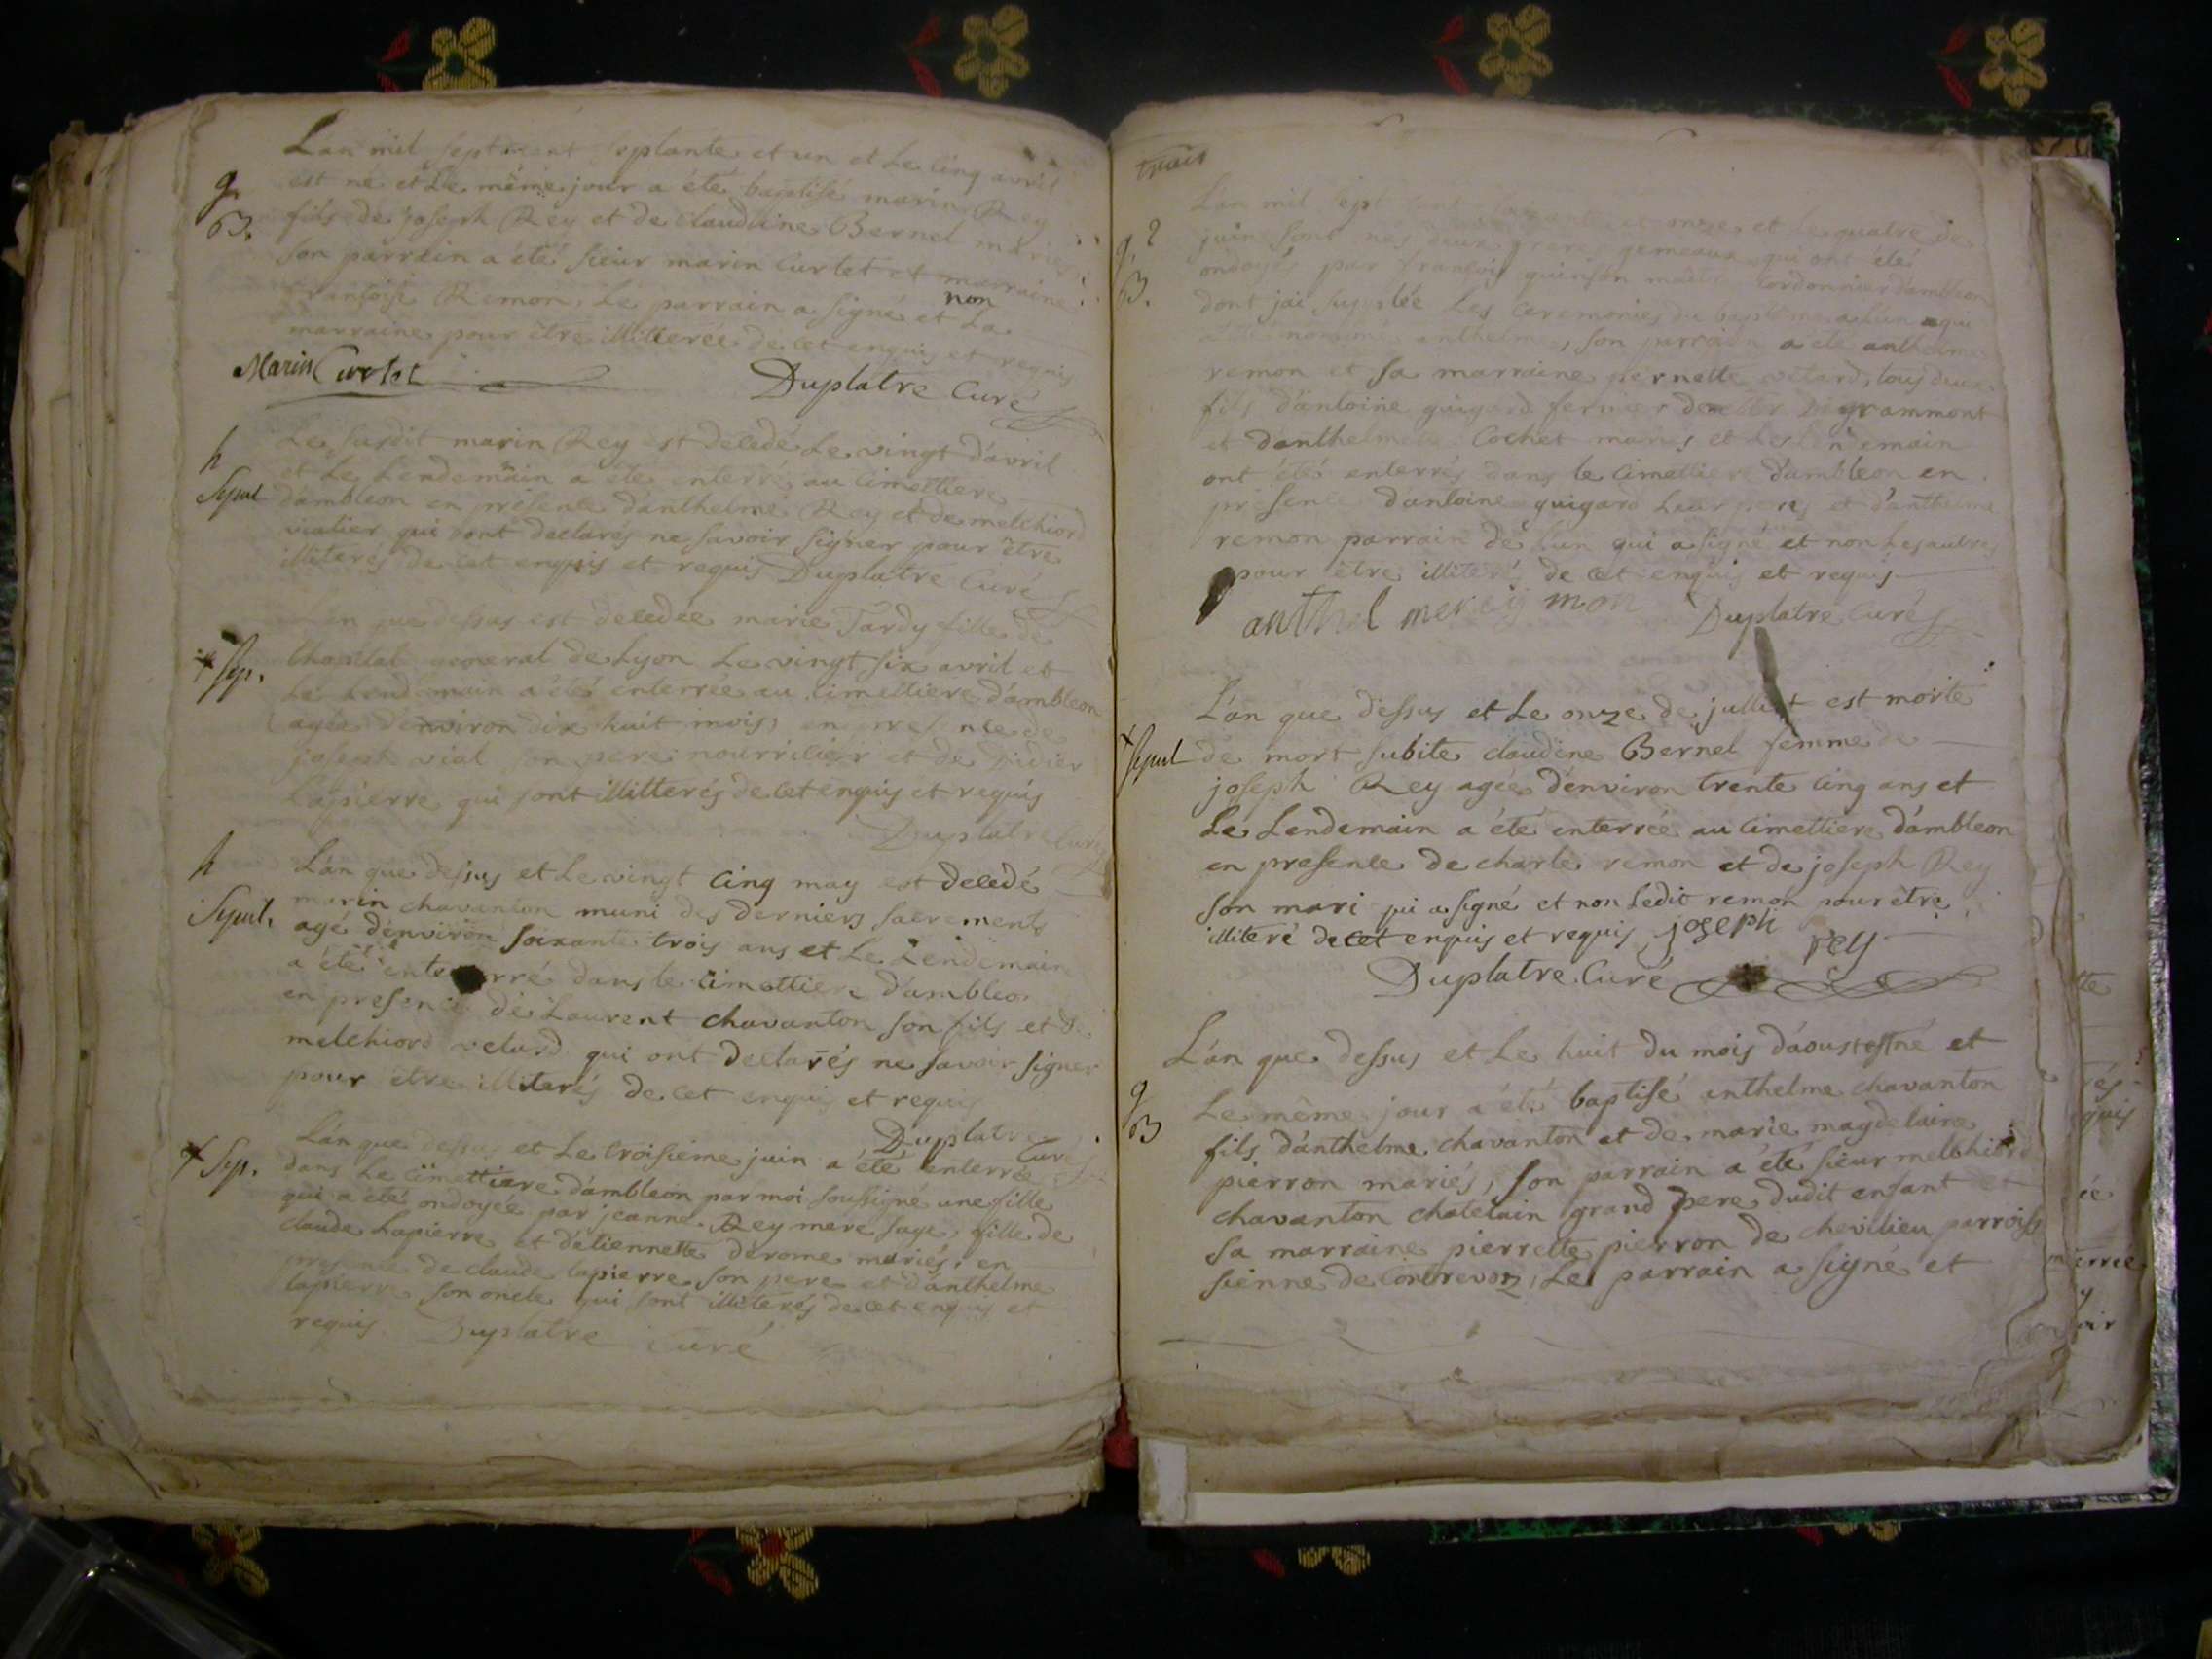 L'an mil sept cent septante et un et le cinq avril
est né et le même jour a été baptisé marin Rey
g.
B.
fils de joseph Rey et de claudine Bernel mariés
son parrain a été sieur marin Curtet et marraine
fransoise Remon. Le parrain a signé et non La
marraine pour être illitterée de cet enquis et requis
Marin Curtet
Duplatre Curé
h
Sepul
Le susdit marin Rey est decedé Le vingt d'avril
et Le Lendemain a été enterré au cimettiere
d'ambleon en présence d'anthelme Rey et de melchiord
vialier qui ont declarés ne savoir signer pour être
illiterés de cet enquis et requis Duplatre Curé
L'an que dessus est decedée marie Tardy fille de
+ Sep.
general de Lyon Le vingt six avril et
Le Lendemain a été enterrée au cimettiere d'ambleon
agée d'environ dix huit mois, en presence de
joseph vial son pere nourricier et de Didier
Lapierre qui sont illitterés de cet enquis et requis
Duplatre Curé
h
Sepul.
L'an que dessus et Le vingt cinq may est decedé
marin chavanton muni des derniers sacrements
agé d'environ soixante trois ans et Le Lendemain
a été enterré dans le cimettiere d'ambleon
en presence de Laurent chavanton son fils et de
melchiord vetard qui ont declarés ne savoir signer
pour être illiterés de cet enquis et requis
Duplatre Curé
+ Sep.
L'an que dessus et Le troisieme juin a été enterrée
dans Le cimettiere d'ambleon par moi soussigné une fille
qui a été ondoyée par jeanne Rey mere sage, fille de
claude Lapierre et d'etiennette derome mariés, en
presence de claude lapierre son pere et d'anthelme
lapierre son oncle qui sont illiterés de cet enquis et
requis. Duplatre Curé
L'an mil sept cent et onze et le quatre de
g. 2
B.
juin sont nes deux freres gemeaux qui ont été
ondoyés par françois guinson maitre Cordonnier d'ambleon
dont jai supplée Les Ceremonies du baptême a Lun qui
a été nommé anthelme, son parrain a été anthelme
remon et sa marraine pernette vetard, tous deux
fils d'antoine guigard fermier de grammont
et d'anthelmette Cochet mariés et Le Lendemain
ont été enterrés dans le cimettiere d'ambleon en
présence d'antoine guigard Leur pere et d'anthelme
remon parrain de Lun qui a signé et non Les autres
pour être illiterés de cet enquis et requis
anthelme reymon Duplatre Curé
L'an que dessus et Le onze de jullet est morte
+ Sepul
de mort subite claudine Bernel femme de
joseph Rey agée d'environ trente cinq ans et
Le Lendemain a été enterrée au cimettiere d'ambleon
en presence de charle remon et de joseph Rey
son mari qui a signé et non Ledit remon pour être
illiteré de cet enquis et requis joseph rey
Duplatre Curé
L'an que dessus et Le huit du mois d'aoust est né et
g
B
Le même jour a été baptisé anthelme chavanton
fils d'anthelme chavanton et de marie magdelaine
pierron mariés, son parrain a été sieur melchiord
chavanton chatelain grand pere dudit enfant et
sa marraine pierrette pierron de chevilieu parrois
sienne de Contrevoz, Le parrain a signé et